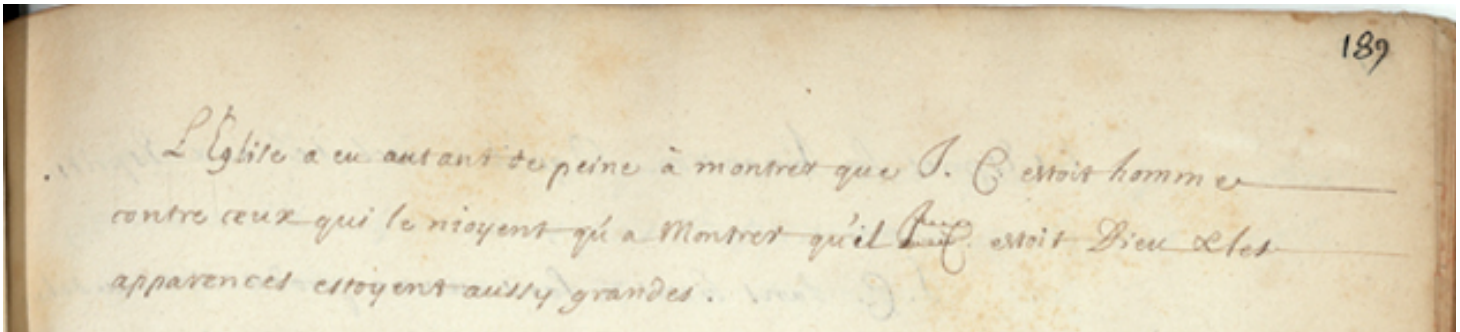 189
L'Eglise a eu autant de peine à montrer que J. C. estoit homme
contre ceux qui le nioyent qu'a Montrer qu'il J. C. estoit Dieu & les
apparences estoyent aussy grandes.